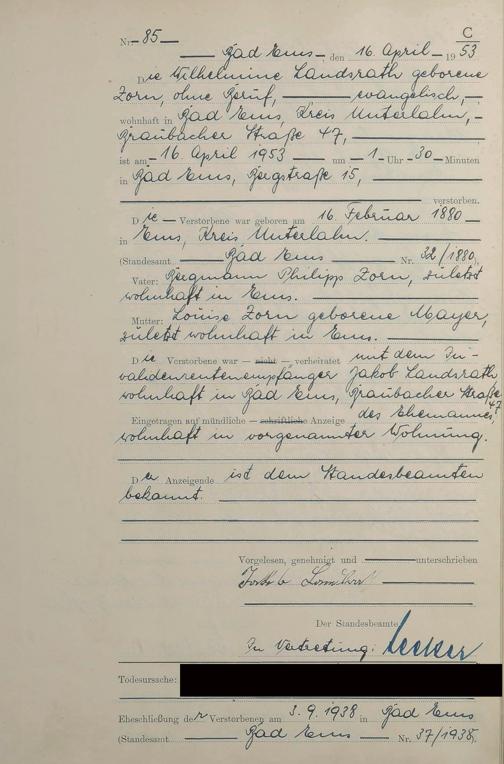 C
Nr. 85
Bad Ems, den 16. April 1953
Die Wilhelmine Landsrath geborene
Zorn, ohne Beruf, evangelisch,
wohnhaft in Bad Ems, Kreis Unterlahn,
Braubacher Straße 47,
ist am 16. April 1953 um 1 Uhr 30 Minuten
in Bad Ems, Bergstraße 15,
verstorben.
Die Verstorbene war geboren am 16. Februar 1880
in Ems, Kreis Unterlahn.
(Standesamt Bad Ems Nr. 32/1880)
Vater: Bergmann Philipp Zorn, zuletzt
wohnhaft in Ems.
Mutter: Louise Zorn geborene Mayer,
zuletzt wohnhaft in Ems.
Die Verstorbene war – nicht – verheiratet mit dem In-
validenrentenempfänger Jakob Landsrath
wohnhaft in Bad Ems, Braubacher Straße
47
Eingetragen auf mündliche – schriftliche Anzeige des Ehemannes,
wohnhaft in vorgenannter Wohnung.
Der Anzeigende ist dem Standesbeamten
bekannt.
Vorgelesen, genehmigt und unterschrieben
Jakob
Der Standesbeamte
In Vertretung: Lecker
Todesursache:
Eheschließung der Verstorbenen am 3.9.1938 in Bad Ems
(Standesamt Bad Ems Nr. 37/1938).